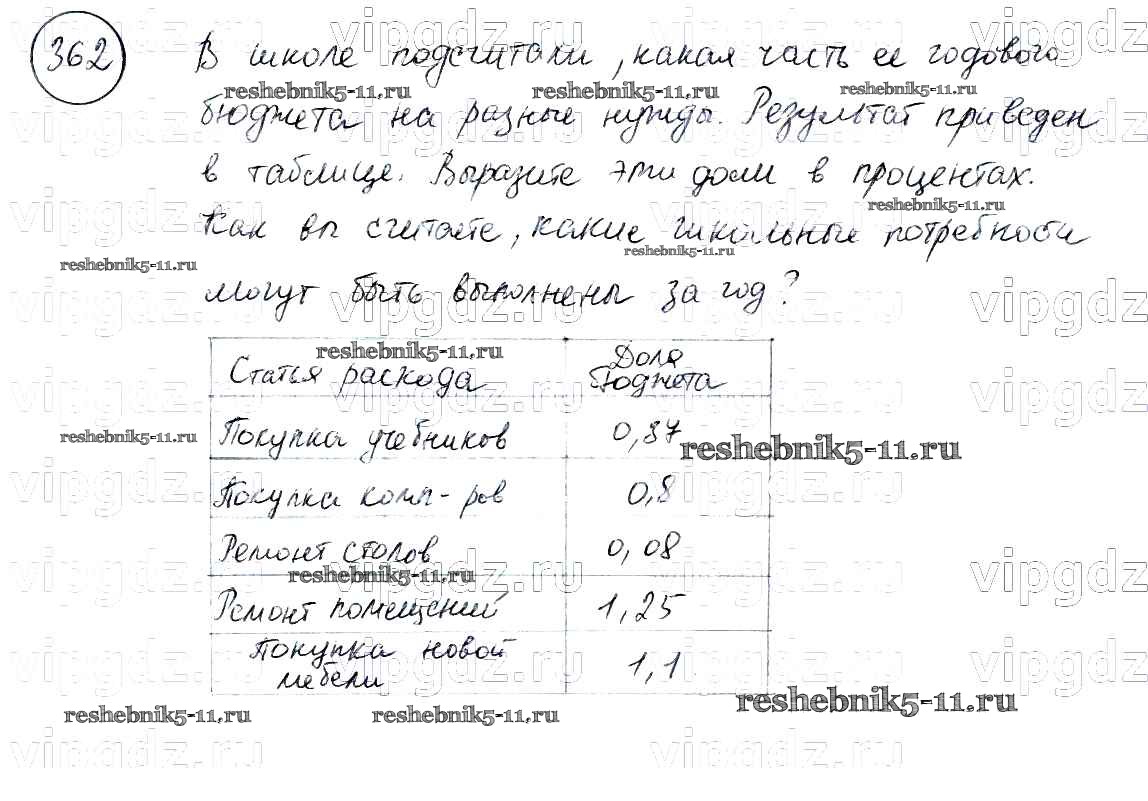 362 В школе подсчитали, какая часть ее годового
бюджета на разные нужды. Результат приведен
в таблице. Выразите эти доли в процентах.
Как вы считаете, какие школьные потребности
могут быть выполнены за год?
Статья расхода Доля бюджета
Покупка учебников 0,37
Покупка комп-ров 0,8
Ремонт столов 0,08
Ремонт помещений 1,25
Покупка новой мебели 1,1
vipgdz.ru
reshebnik5-11.ru